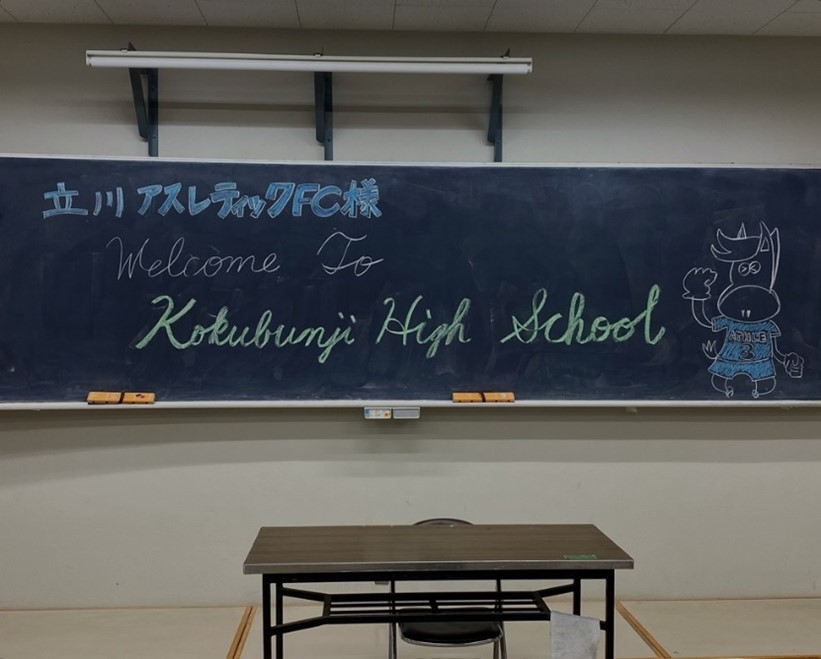 立川アスレティックFC様
Welcome To
Kokubunji High School